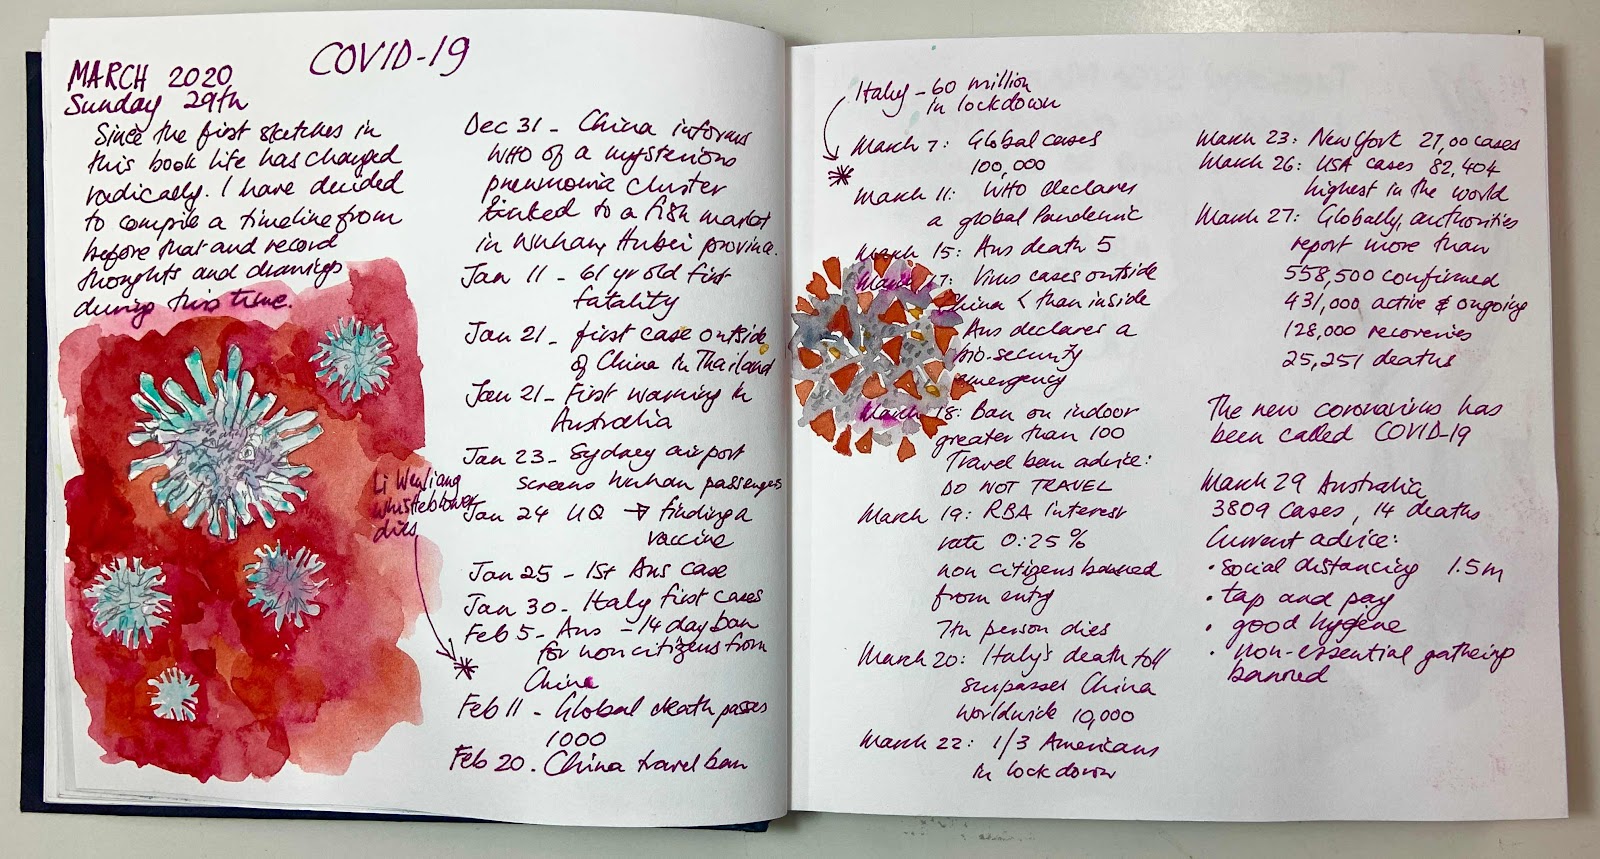 COVID-19
MARCH 2020
Sunday 29th
Since the first sketches in
this book life has changed
radically. I have decided
to compile a timeline from
before that and record
thoughts and drawings
during this time.
Dec 31 - China informs
WHO of a mysterious
pneumonia cluster
linked to a fish market
in Wuhan, Hubei province.
Jan 11 - 61 yr old first
fatality
Jan 21 - first case outside
of China in Thailand
Jan 21 - First warning in
Australia
Jan 23 - Sydney airport
screens Wuhan passengers
Jan 24 UQ → finding a
vaccine
Jan 25 - 1st Aus case
Jan 30 - Italy first cases
Feb 5 - Aus - 14 day ban
for non citizens from
China
Feb 11 - Global death passes
1000
Feb 20 - China travel ban
Li Wenliang
whistleblower
dies
*
Italy - 60 million
in lockdown
*
March 7: Global cases
100,000
March 11: WHO declares
a global Pandemic
March 15: Aus death 5
March 17: Virus cases outside
China < than inside
Aus declares a
bio-security
emergency
March 18: Ban on indoor
greater than 100
Travel ban advice:
DO NOT TRAVEL
March 19: RBA interest
rate 0:25%
non citizens banned
from entry
7th person dies
March 20: Italy's death toll
surpasses China
Worldwide 10,000
March 22: 1/3 Americans
in lockdown
March 23: New York 21,00 cases
March 26: USA cases 82,404
highest in the world
March 27: Globally, authorities
report more than
558,500 confirmed
431,000 active & ongoing
128,000 recoveries
25,251 deaths
The new coronavirus has
been called COVID-19
March 29 Australia
3809 cases, 14 deaths
Current advice:
• social distancing 1.5m
• tap and pay
• good hygiene
• non-essential gatheing
banned